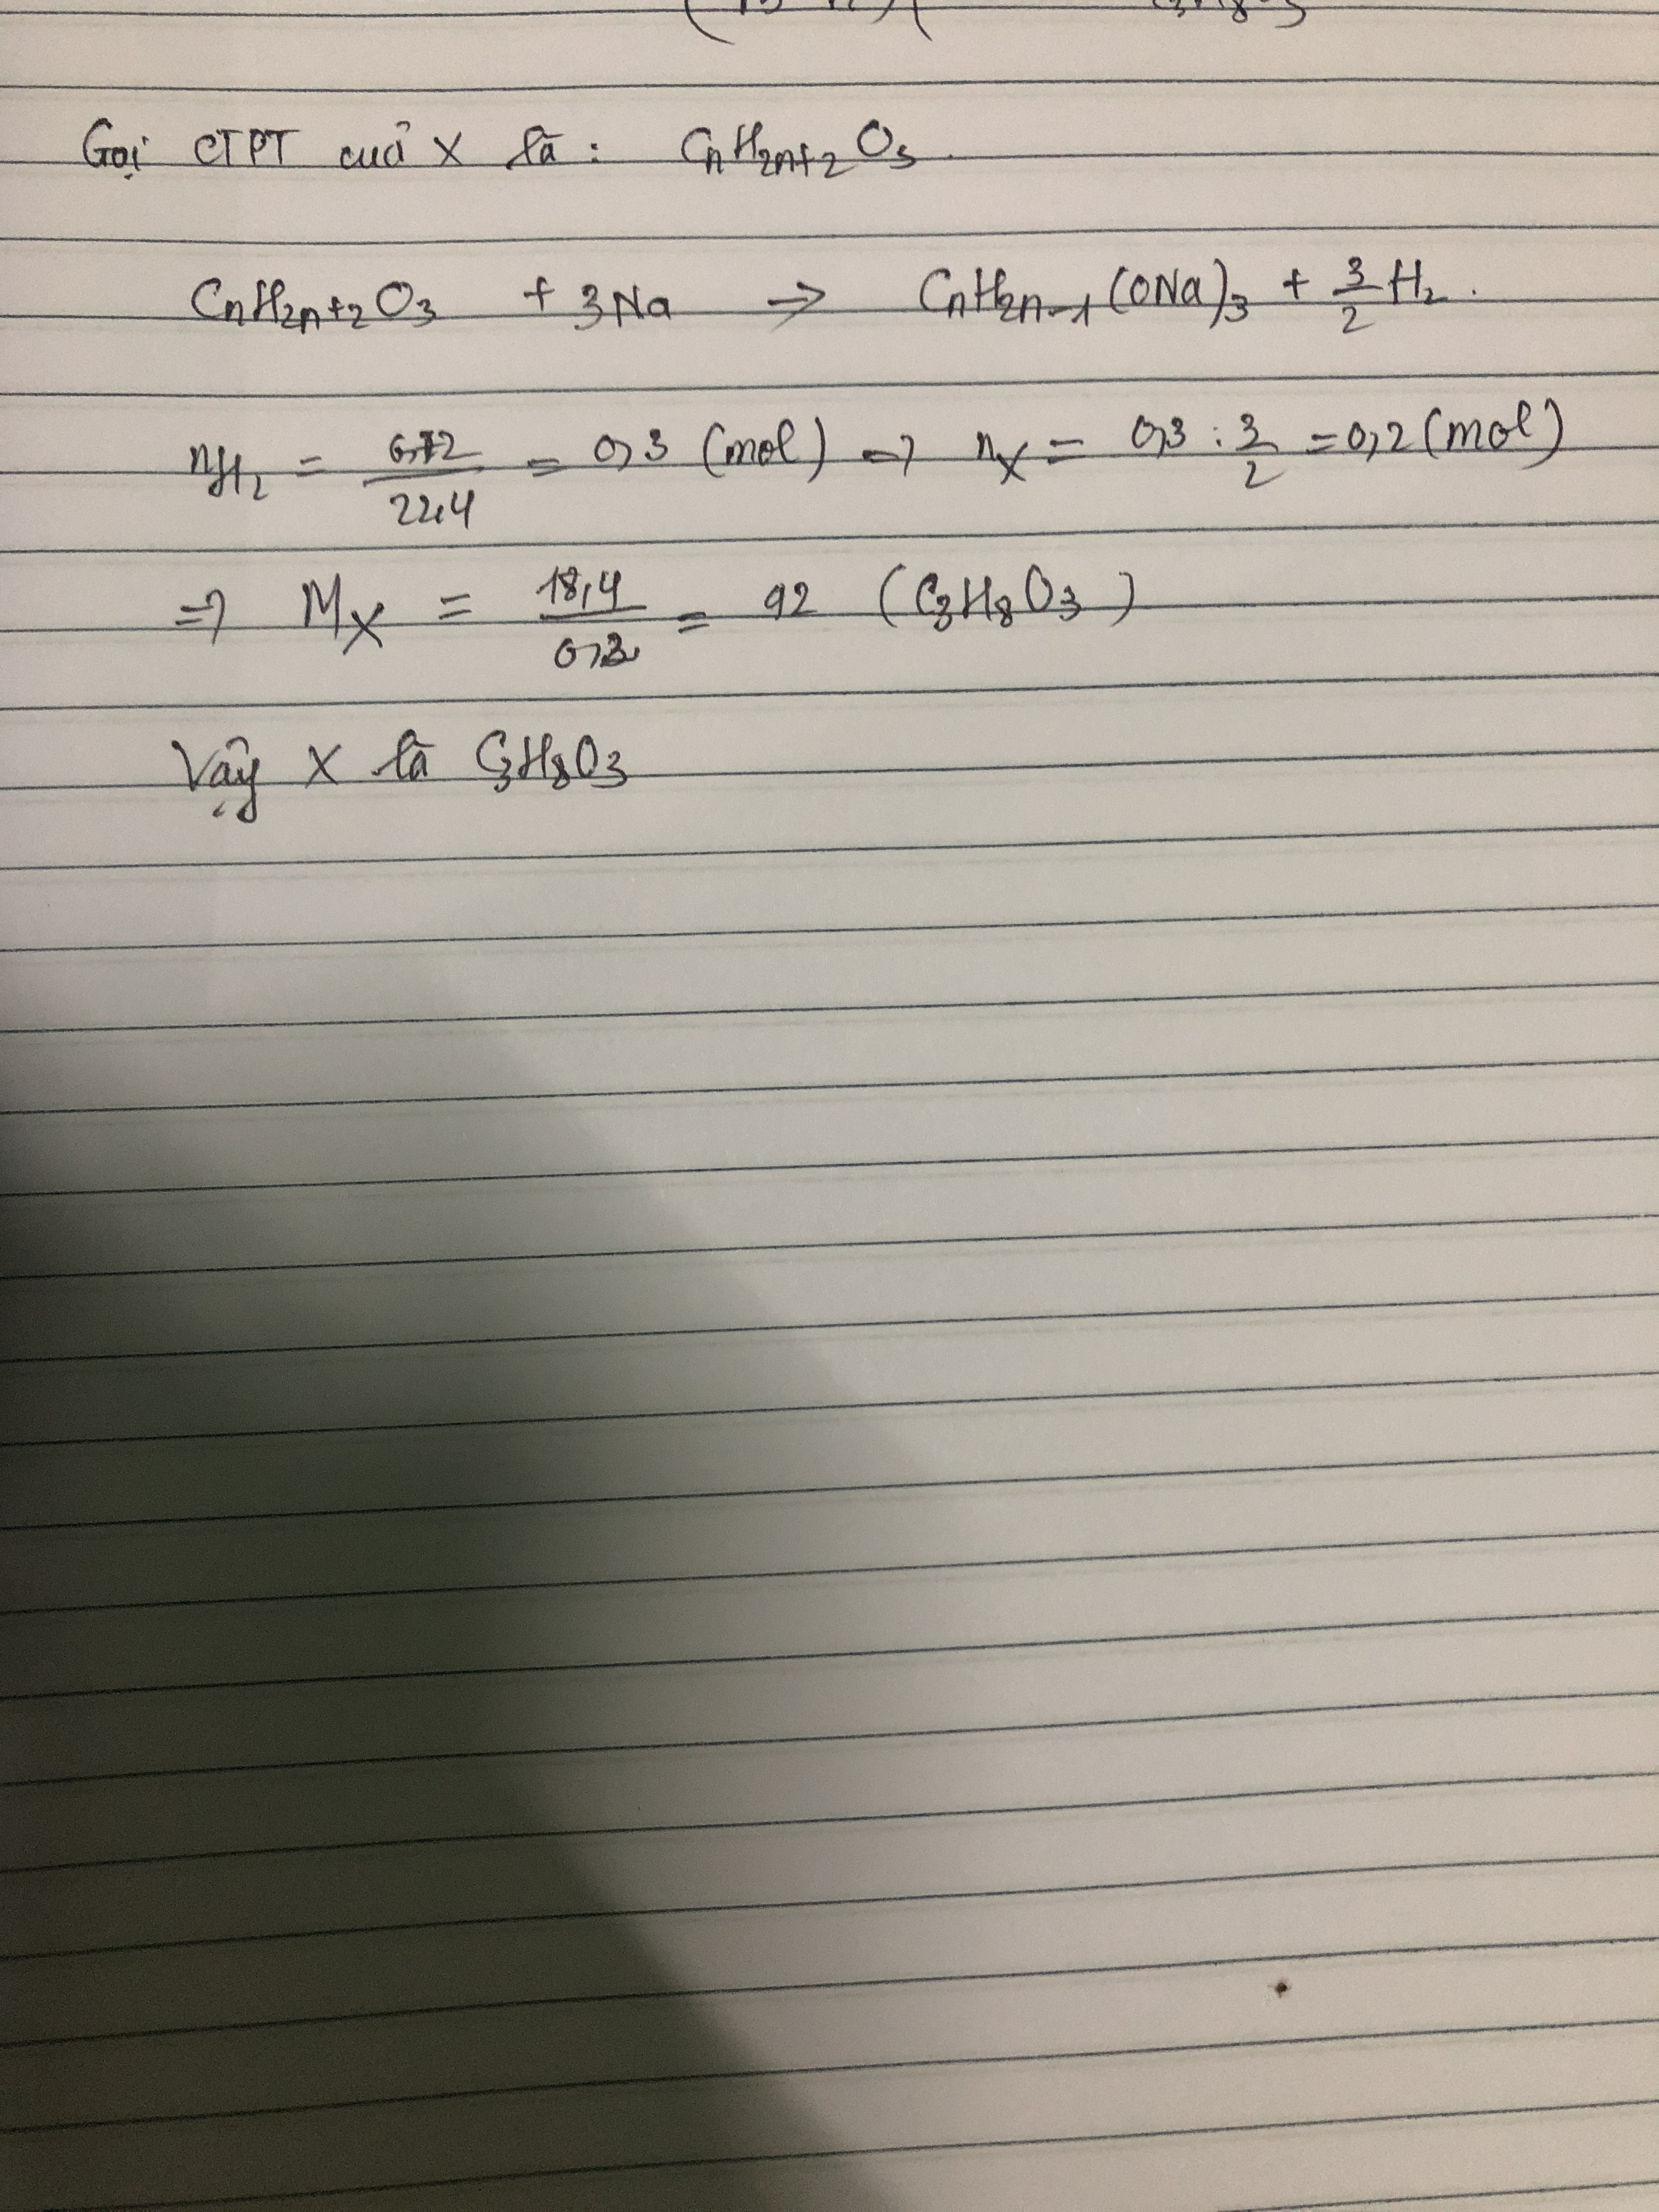 Gọi CTPT cuả X là : CnH2n+2O3.
CnH2n+2O3 + 3Na => CnH2n-1(ONa)3 + 3/2 H2.
nH2 = 6,72/22,4 = 0,3 (mol) => nX = 0,3 : 3/2 = 0,2 (mol)
=> MX = 18,4/0,2 = 92 (C3H8O3)
Vậy X là C3H8O3